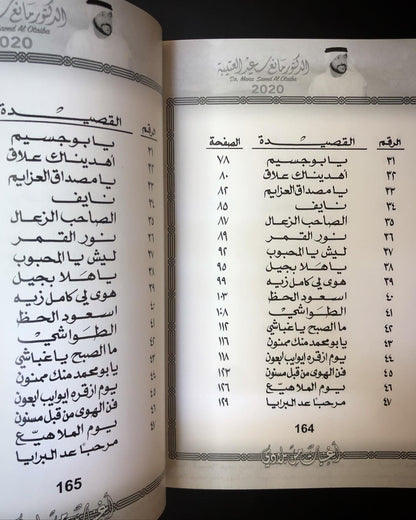 الدكتور مانع سعيد العتيبة
Dr. Mana Saeed Al Otaiba
2020
الرقم القصيدة الصفحة
٣١ يا بوجسيم ٧٨
٣٢ أهديناك علاق ٨٠
٣٣ يا مصداق العزايم ٨٢
٣٤ نايف ٨٥
٣٥ الصاحب الزعال ٨٧
٣٦ نور القمر ٨٩
٣٧ ليش يا المحبوب ٩٢
٣٨ يا هلا بجيل ٩٥
٣٩ هوى لي كامل زيه ٩٩
٤٠ اسعود الحظ ١٠٣
٤١ الطواشي ١٠٨
٤٢ ما الصبح يا غباشي ١١٢
٤٣ يا بو محمد منك ممنون ١١٦
٤٤ يوم ازقره ايوايب ابعون ١١٨
٤٥ فن الهوى من قبل مسنون ١٢٣
٤٦ يوم الملاهيع ١٢٦
٤٧ مرحبا عد البرايا ١٢٩
164
أغنيات من بلادي
الدكتور مانع سعيد العتيبة
Saeed Al Otaiba
2020
الرقم القصيدة
٣١ يا بوجسيم
٣٢ أهديناك علاق
٣٣ يا مصداق العزايم
٣٤ نايف
٣٥ الصاحب الزعال
٣٦ نور القمر
٣٧ ليش يا المحبوب
٣٨ يا هلا بجيل
٣٩ هوى لي كامل زيه
٤٠ اسعود الحظ
٤١ الطواشي
٤٢ ما الصبح يا غباشي
٤٣ يا بو محمد منك ممنون
٤٤ يوم ازقره ايوايب ابعون
٤٥ فن الهوى من قبل مسنون
٤٦ يوم الملاهيع
٤٧ مرحبا عد البرايا
165